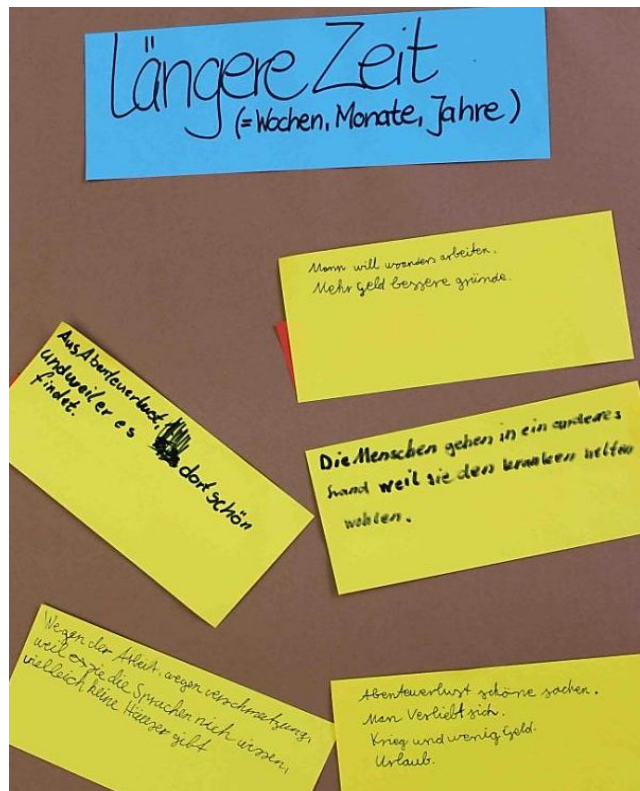 Längere Zeit
(=Wochen, Monate, Jahre)
Mann will woanders arbeiten.
Mehr Geld bessere gründe.
Aus Abenteuerlust,
und weil er es dort schön
findet.
Die Menschen gehen in ein anderes
land weil sie den kranken helfen
wohlen.
Wegen der Arbeit, wegen
weil sie die Sprachen nich wissen,
vielleich keine Häuser gibt
Abenteuerlust schöne sachen.
Man Verliebt sich.
Krieg und wenig Geld.
Urlaub.